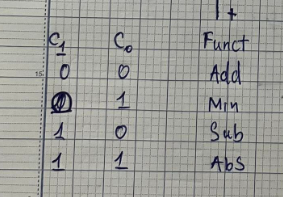 1 +
C1 C0 Funct
15 0 0 Add
0 1 Min
1 0 Sub
1 1 Abs